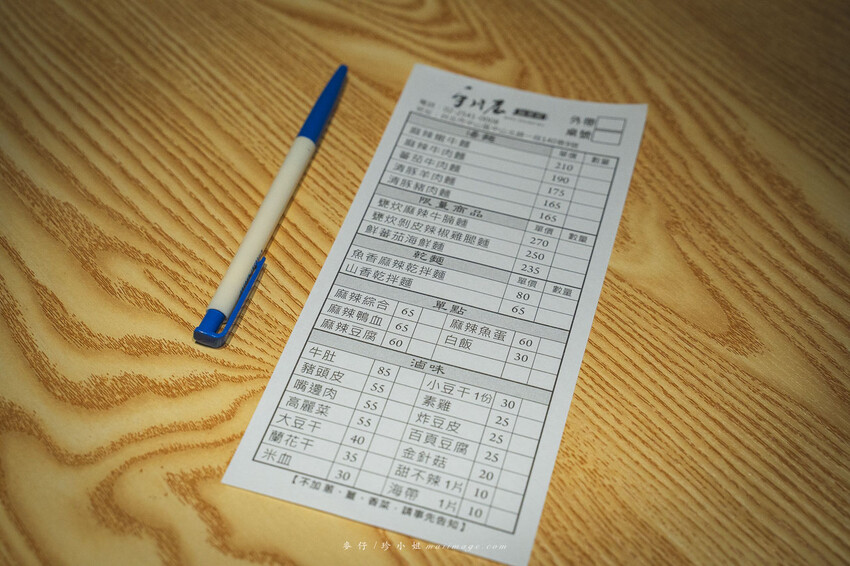 外帶
電話：02-2541-0008
桌號
湯麵 單價 數量
麻辣嫩牛麵 210
麻辣牛肉麵 190
蕃茄牛肉麵 175
清豚羊肉麵 165
清豚豬肉麵 165
限量商品 單價 數量
甕炊麻辣牛腩麵 270
甕炊剝皮辣椒雞腿麵 250
鮮蕃茄海鮮麵 235
乾麵 單價 數量
魚香麻辣乾拌麵 80
山香乾拌麵 65
單點
麻辣綜合 65 麻辣魚蛋 60
麻辣鴨血 65 白飯 30
麻辣豆腐 60
滷味
牛肚 85 小豆干 1份 30
豬頭皮 55 素雞 25
嘴邊肉 55 炸豆皮 25
高麗菜 55 百頁豆腐 25
大豆干 40 金針菇 20
蘭花干 35 甜不辣 1片 10
米血 30 海帶 1片 10
【不加蔥．薑．香菜．請事先告知】
麥仔/珍小姐